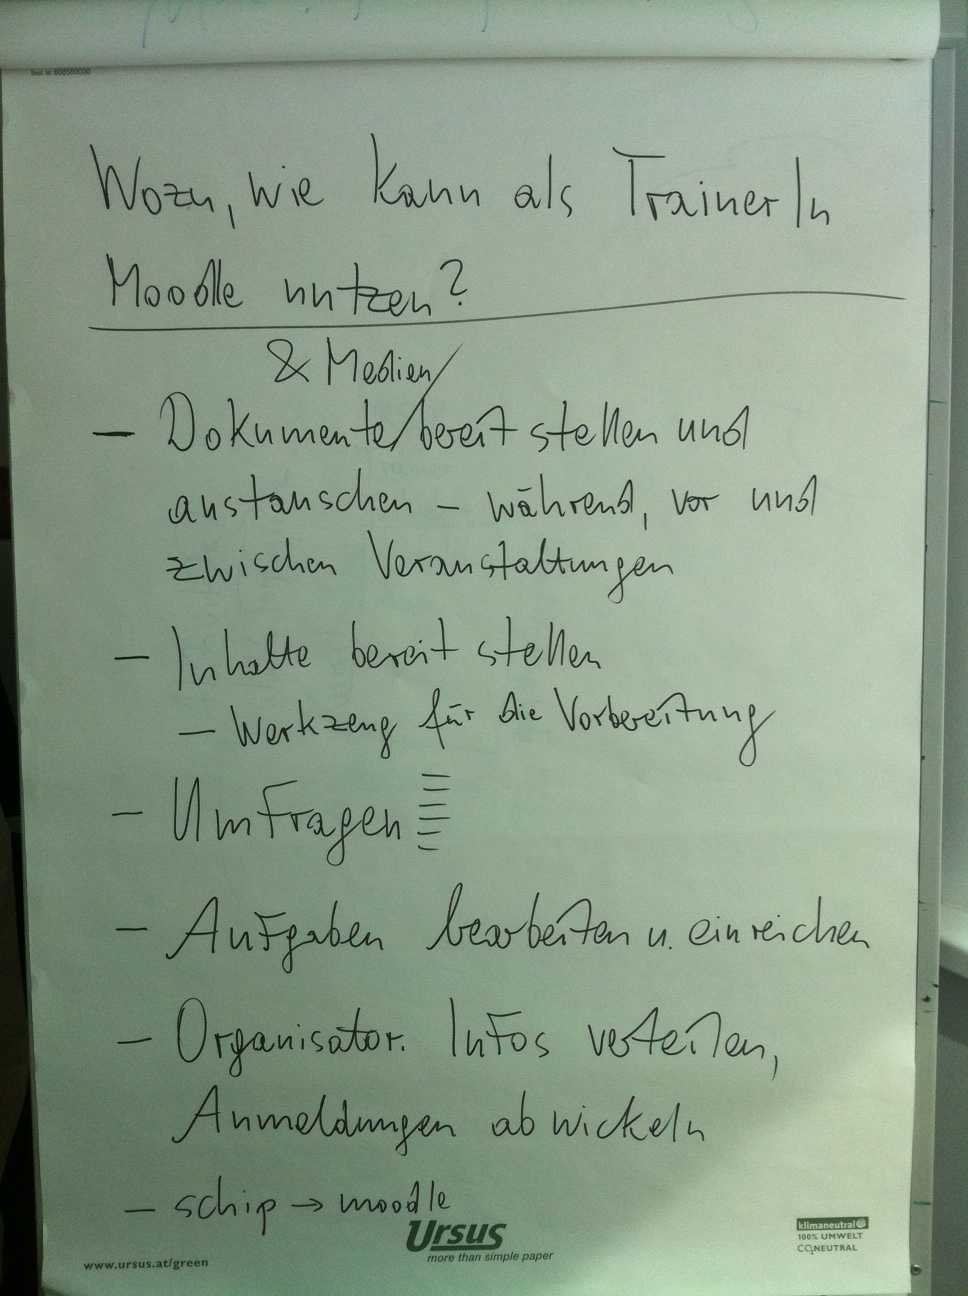 Wozu, wie kann als TrainerIn
Moodle nutzen?
& Medien
– Dokumente/bereit stellen und
austauschen – während, vor und
zwischen Veranstaltungen
– Inhalte bereit stellen
– Werkzeug für die Vorbereitung
– Umfragen
– Aufgaben bearbeiten u. einreichen
– Organisator. Infos verteilen,
Anmeldungen abwickeln
– schip → moodle
Ursus
more than simple paper
www.ursus.at/green
klimaneutral
100% UMWELT
CO2NEUTRAL